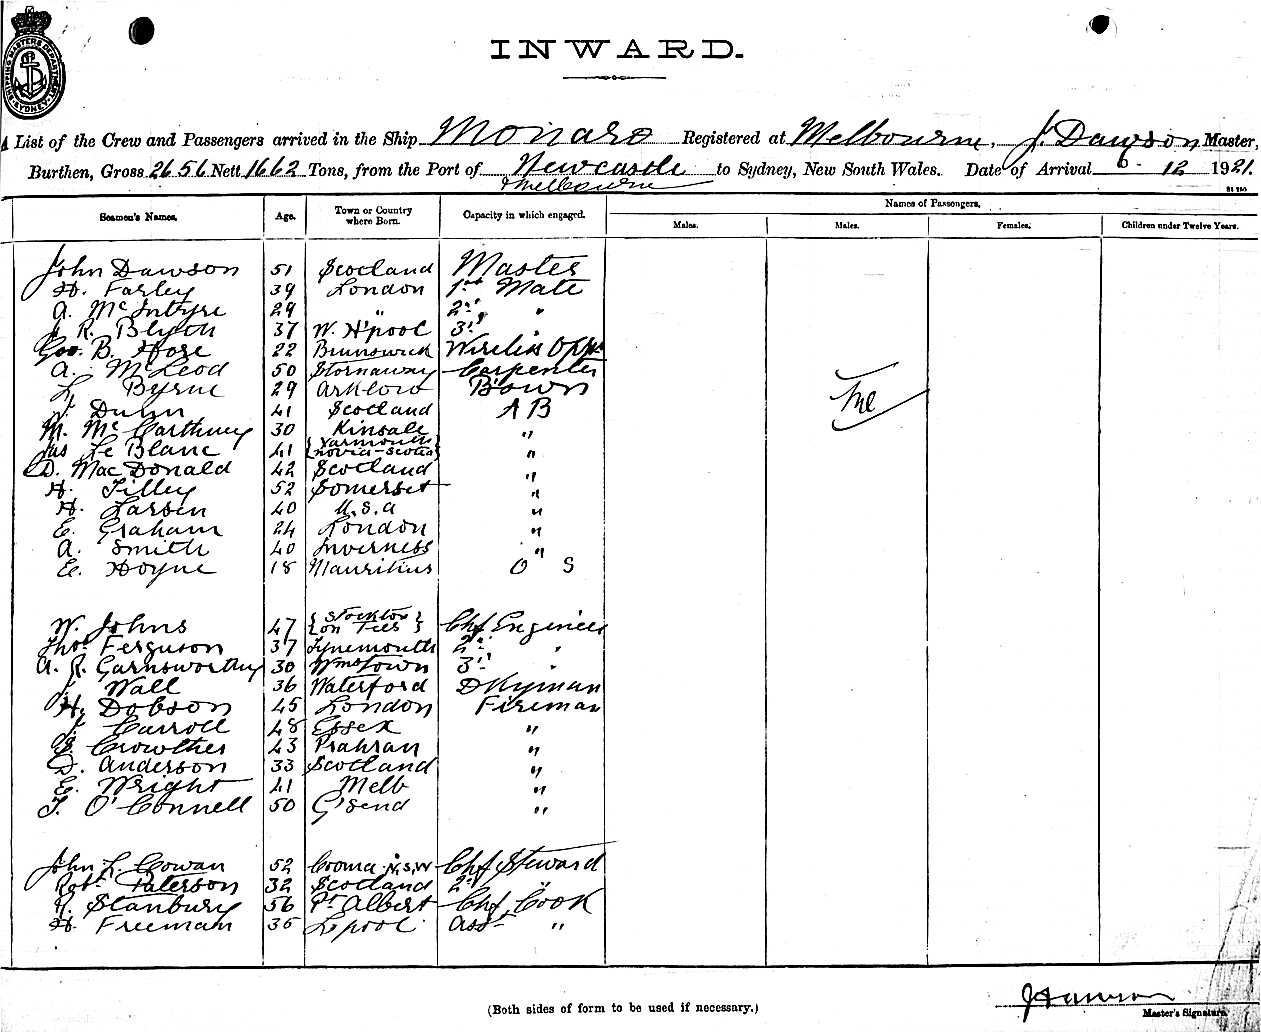 SHIPPING MASTERS DEPARTMENT SYDNEY
INWARD.
List of the Crew and Passengers arrived in the Ship Monaro Registered at Melbourne, J. Dawson Master,
Burthen, Gross 2656 Nett 1662 Tons, from the Port of Newcastle to Sydney, New South Wales. Date of Arrival 6 - 12 1921.
& Melbourne
Names of Passengers.
Seamen's Names. Age. Town or Country where Born. Capacity in which engaged. Males. Males. Females. Children under Twelve Years.
John Dawson 51 Scotland Master
H. Farley 39 London 1st Mate
A. McIntyre 29 " 2nd "
R. Blyth 37 W. H'pool 3rd "
Geo. B. Hore 22 Brunswick Wireless Oppr
A. McLeod 50 Stornaway Carpenter
L. Byrne 29 Arklow B'swn
W. Dunn 41 Scotland A B
M. McCarthney 30 Kinsale "
Jas Le Blanc 41 {Yarmouth Novia-Scotia} "
D. MacDonald 42 Scotland "
H. Tilley 52 Somerset "
H. Larsen 40 U.S.A "
E. Graham 24 London "
A. Smith 40 Inverness "
E. Hoyne 18 Mauritius O S
Nil
W. Johns 47 {Stockton on Tees} Chf Engineer
Thos Ferguson 37 Tynemouth 2nd "
A. R. Garnsworthy 30 Wmstown 3rd "
J. Wall 36 Waterford Dkyman
H. Dobson 45 London Fireman
J. Carroll 48 Essex "
G. Crowther 43 Prahran "
D. Anderson 33 Scotland "
E. Wright 41 Melb "
T. O'Connell 50 G'send "
John L. Cowan 52 Cooma N.S.W Chf Steward
Robt Paterson 32 Scotland 2nd "
R. Stanbury 56 Pt Albert Chf Cook
H. Freeman 36 L'pool Asst "
(Both sides of form to be used if necessary.)
J Dawson
Master's Signature.